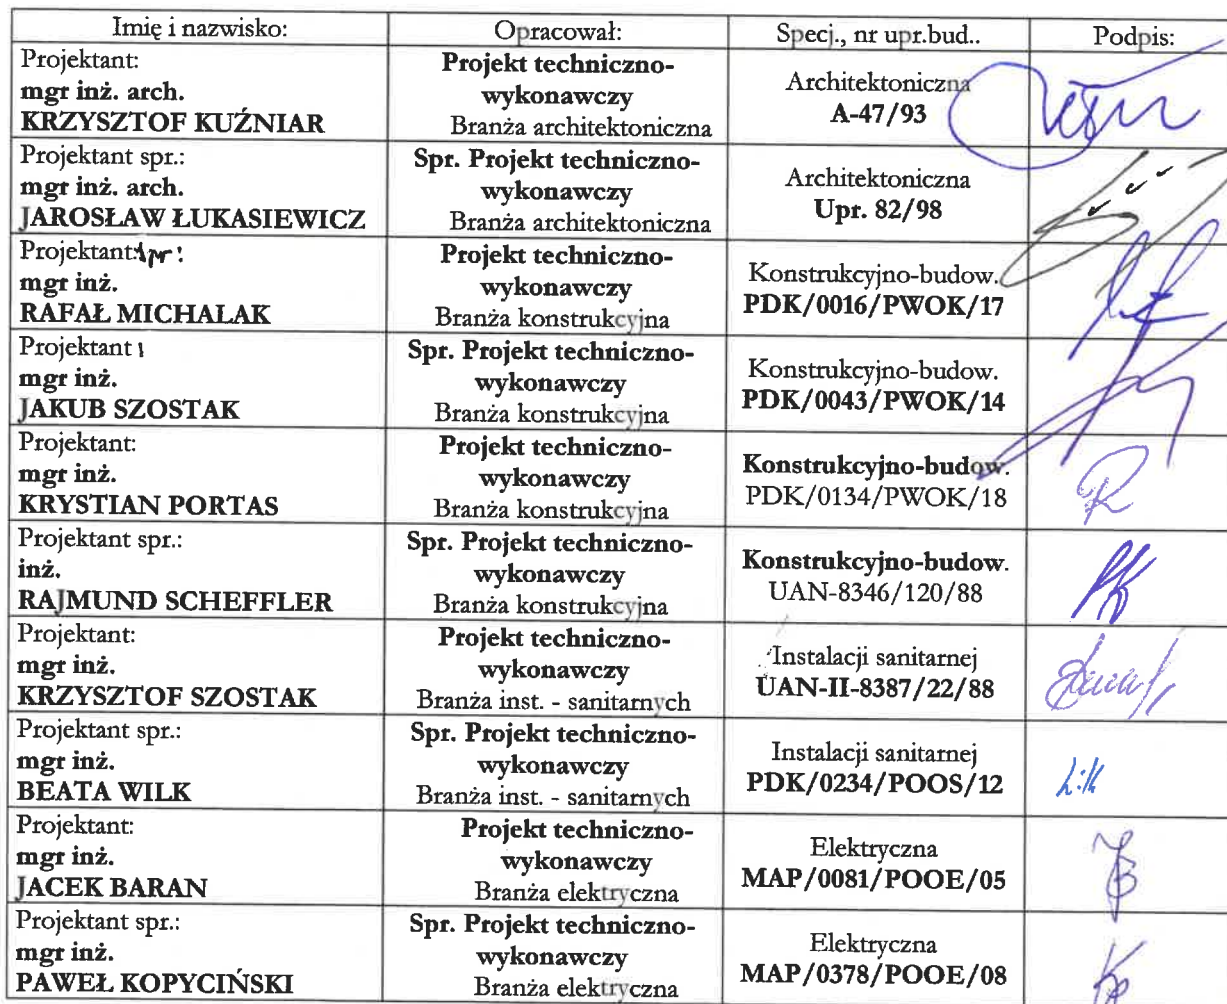 Imię i nazwisko: Opracował: Specj., nr upr.bud.. Podpis:
Projektant:
mgr inż. arch.
KRZYSZTOF KUŹNIAR
Projekt techniczno-
wykonawczy
Branża architektoniczna
Architektoniczna
A-47/93
Projektant spr.:
mgr inż. arch.
JAROSŁAW ŁUKASIEWICZ
Spr. Projekt techniczno-
wykonawczy
Branża architektoniczna
Architektoniczna
Upr. 82/98
Projektant spr:
mgr inż.
RAFAŁ MICHALAK
Projekt techniczno-
wykonawczy
Branża konstrukcyjna
Konstrukcyjno-budow.
PDK/0016/PWOK/17
Projektant
mgr inż.
JAKUB SZOSTAK
Spr. Projekt techniczno-
wykonawczy
Branża konstrukcyjna
Konstrukcyjno-budow.
PDK/0043/PWOK/14
Projektant:
mgr inż.
KRYSTIAN PORTAS
Projekt techniczno-
wykonawczy
Branża konstrukcyjna
Konstrukcyjno-budow.
PDK/0134/PWOK/18
Projektant spr.:
inż.
RAJMUND SCHEFFLER
Spr. Projekt techniczno-
wykonawczy
Branża konstrukcyjna
Konstrukcyjno-budow.
UAN-8346/120/88
Projektant:
mgr inż.
KRZYSZTOF SZOSTAK
Projekt techniczno-
wykonawczy
Branża inst. - sanitarnych
Instalacji sanitarnej
UAN-II-8387/22/88
Projektant spr.:
mgr inż.
BEATA WILK
Spr. Projekt techniczno-
wykonawczy
Branża inst. - sanitarnych
Instalacji sanitarnej
PDK/0234/POOS/12
Projektant:
mgr inż.
JACEK BARAN
Projekt techniczno-
wykonawczy
Branża elektryczna
Elektryczna
MAP/0081/POOE/05
Projektant spr.:
mgr inż.
PAWEŁ KOPYCIŃSKI
Spr. Projekt techniczno-
wykonawczy
Branża elektryczna
Elektryczna
MAP/0378/POOE/08